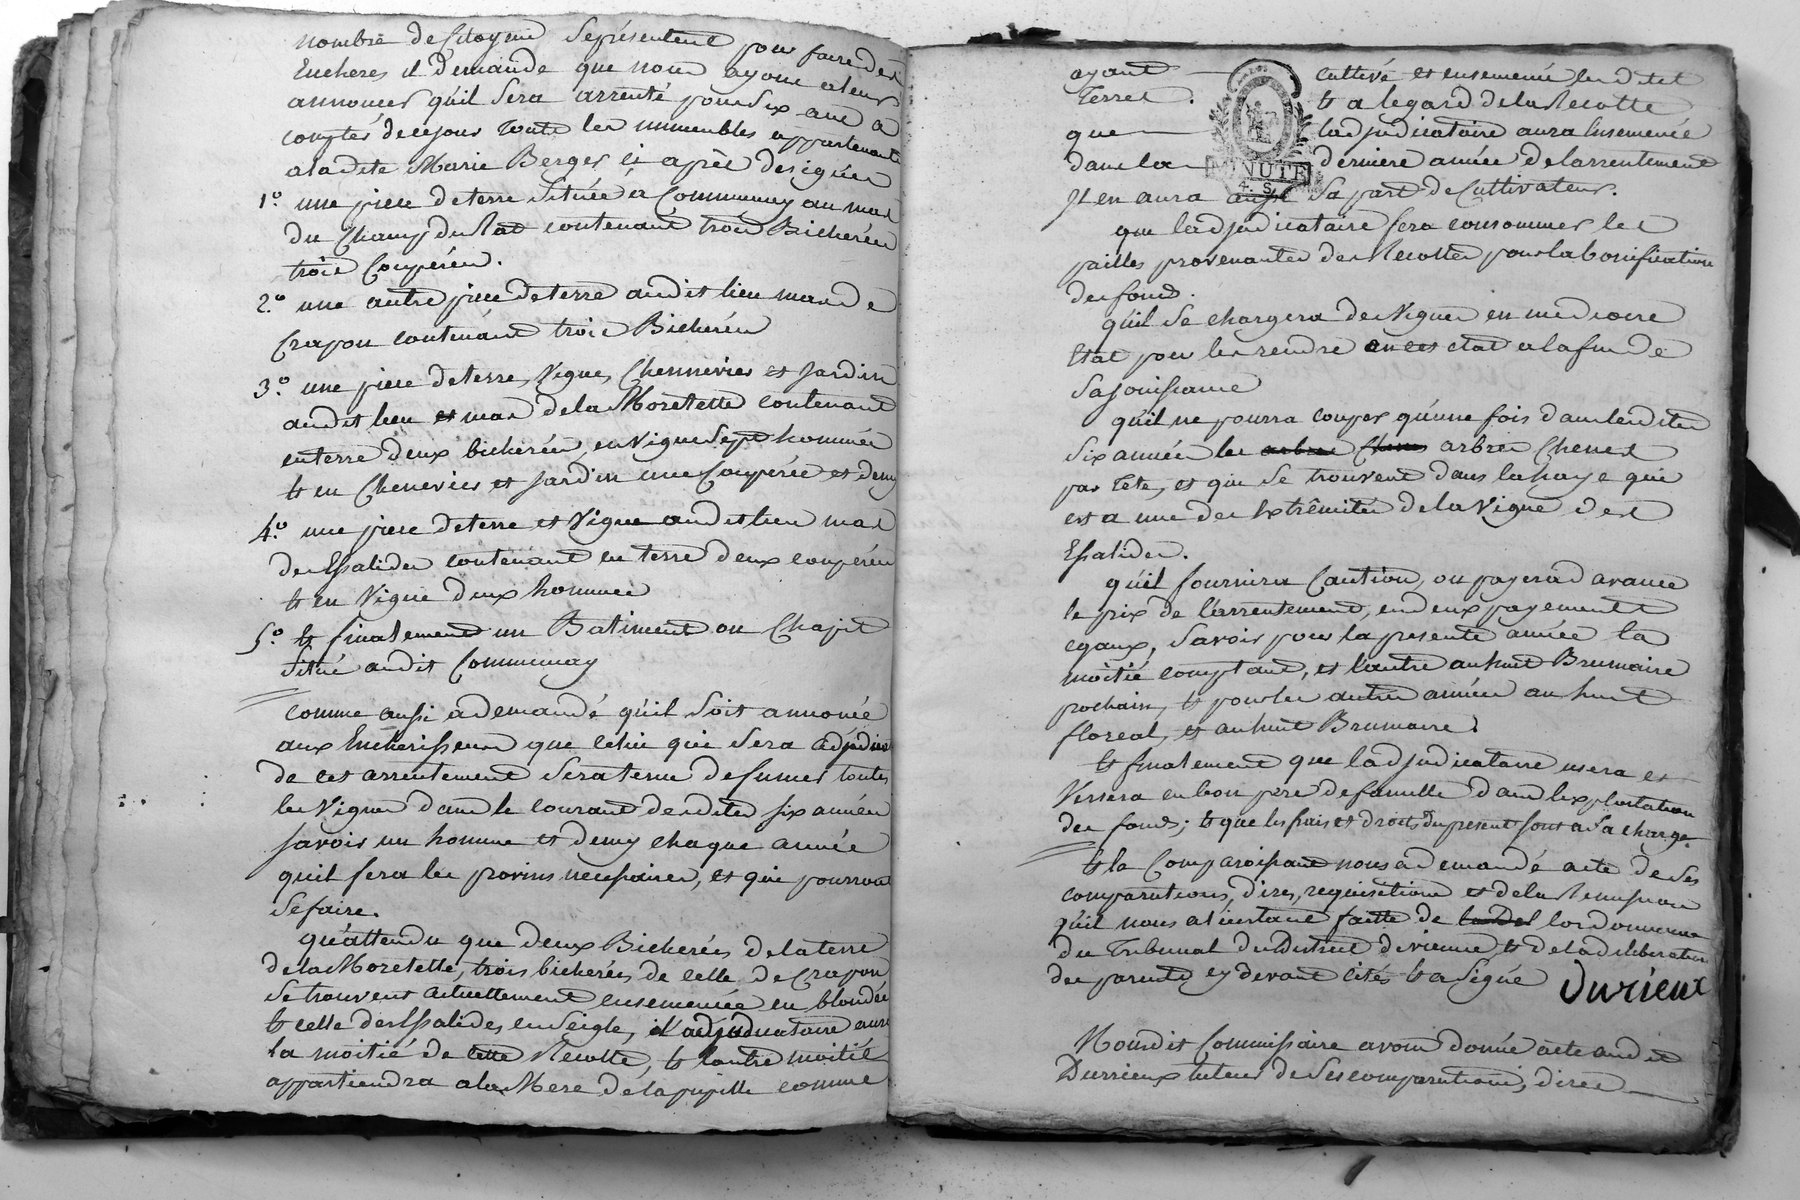 nombre de Citoyens se présentent pour faire des
Encheres il demande que nous ayons a leur
annoncer qu'il sera arrenté pour six ans a
compter de ce jour toute les immeubles appartenants
a la dite Marie Berger ci après designés
1.° une piece de terre située à Communay au mas
du Champ du Rat contenant trois Bicherées
trois Couperées.
2.° une autre piece de terre audit lieu mas de
Crapon contenant trois Bicherées
3.° une piece de terre, Vigne, Chennevier et Jardin
audit lieu et mas de la Moretette contenant
en terre deux bicherées, en Vigne Sept hommées
Et en Chenevier et Jardin une Couperée et demy
4.° une piece de terre et Vigne audit lieu mas
des Essalides contenant en terre deux couperées
Et en Vigne deux hommées
5.° Et finalement un Batiment ou Chapit
Situé audit Communay
comme aussi a demandé qu'il soit annoncé
aux Enchérisseurs que celui qui sera adjudica
de cet arrentement sera tenu de fumer toutes
les Vignes dans le courant desdites six années
savoir un homme et demy chaque année
quil fera les provins necessaires, et qui pourront
se faire.
qu'attendu que deux Bicherées de la terre
de la Moretette, trois bicherées de celle de Crapon
se trouvent actuellement ensemencée en blondée
Et celle des Essalides, en Seigle, l'adjudicataire aura
la moitié de cette Recotte, Et l'autre moitié
appartiendra a la Mere de la pupille comme
ayant cultivé et ensemencé les dites
Terres. Et a legard de la Recotte
que ladjudicataire aura Ensemencée
dans la derniere année de larrentement
Il en aura aussi Sa part de Cultivateur.
MINUTE
4. S.
que ladjudicataire fera consommer les
pailles provenantes des Recottes pour la bonification
des fonds.
qu'il se chargera des Vignes en mediocre
Etat pour les rendre en cet etat a la fin de
sa jouissance
qu'il ne pourra couper qu'une fois dans lesdites
Six années les arbres Chenes arbres Chenes
par Tete, et qui se trouvent dans la haye qui
est a une des Extrêmités de la Vigne des
Essalides.
qu'il fournira Caution, ou payera d'avance
le prix de l'arrentement, en deux payements
egaux, savoir pour la presente année la
moitié comptant, et l'autre au huit Brumaire
prochain, Et pour les autres années au huit
floreal, et au huit Brumaire.
Et finalement que ladjudicataire usera et
Versera en bon pere de famille dans lexploitation
des fonds; Et que les frais et droits du present sont a Sa charge.
Et la Comparoissant nous a demandé acte de Ses
comparutions, dires, requisitions et de la Remission
qu'il nous a l'instant faitte de lordonnance
du Tribunal du District de vienne, Et de la deliberation
des parents cy devant cités Et a Signé Durieux
Nousdit Commissaire avons donné acte audit
Durrieux tuteur de Ses comparutions, dires